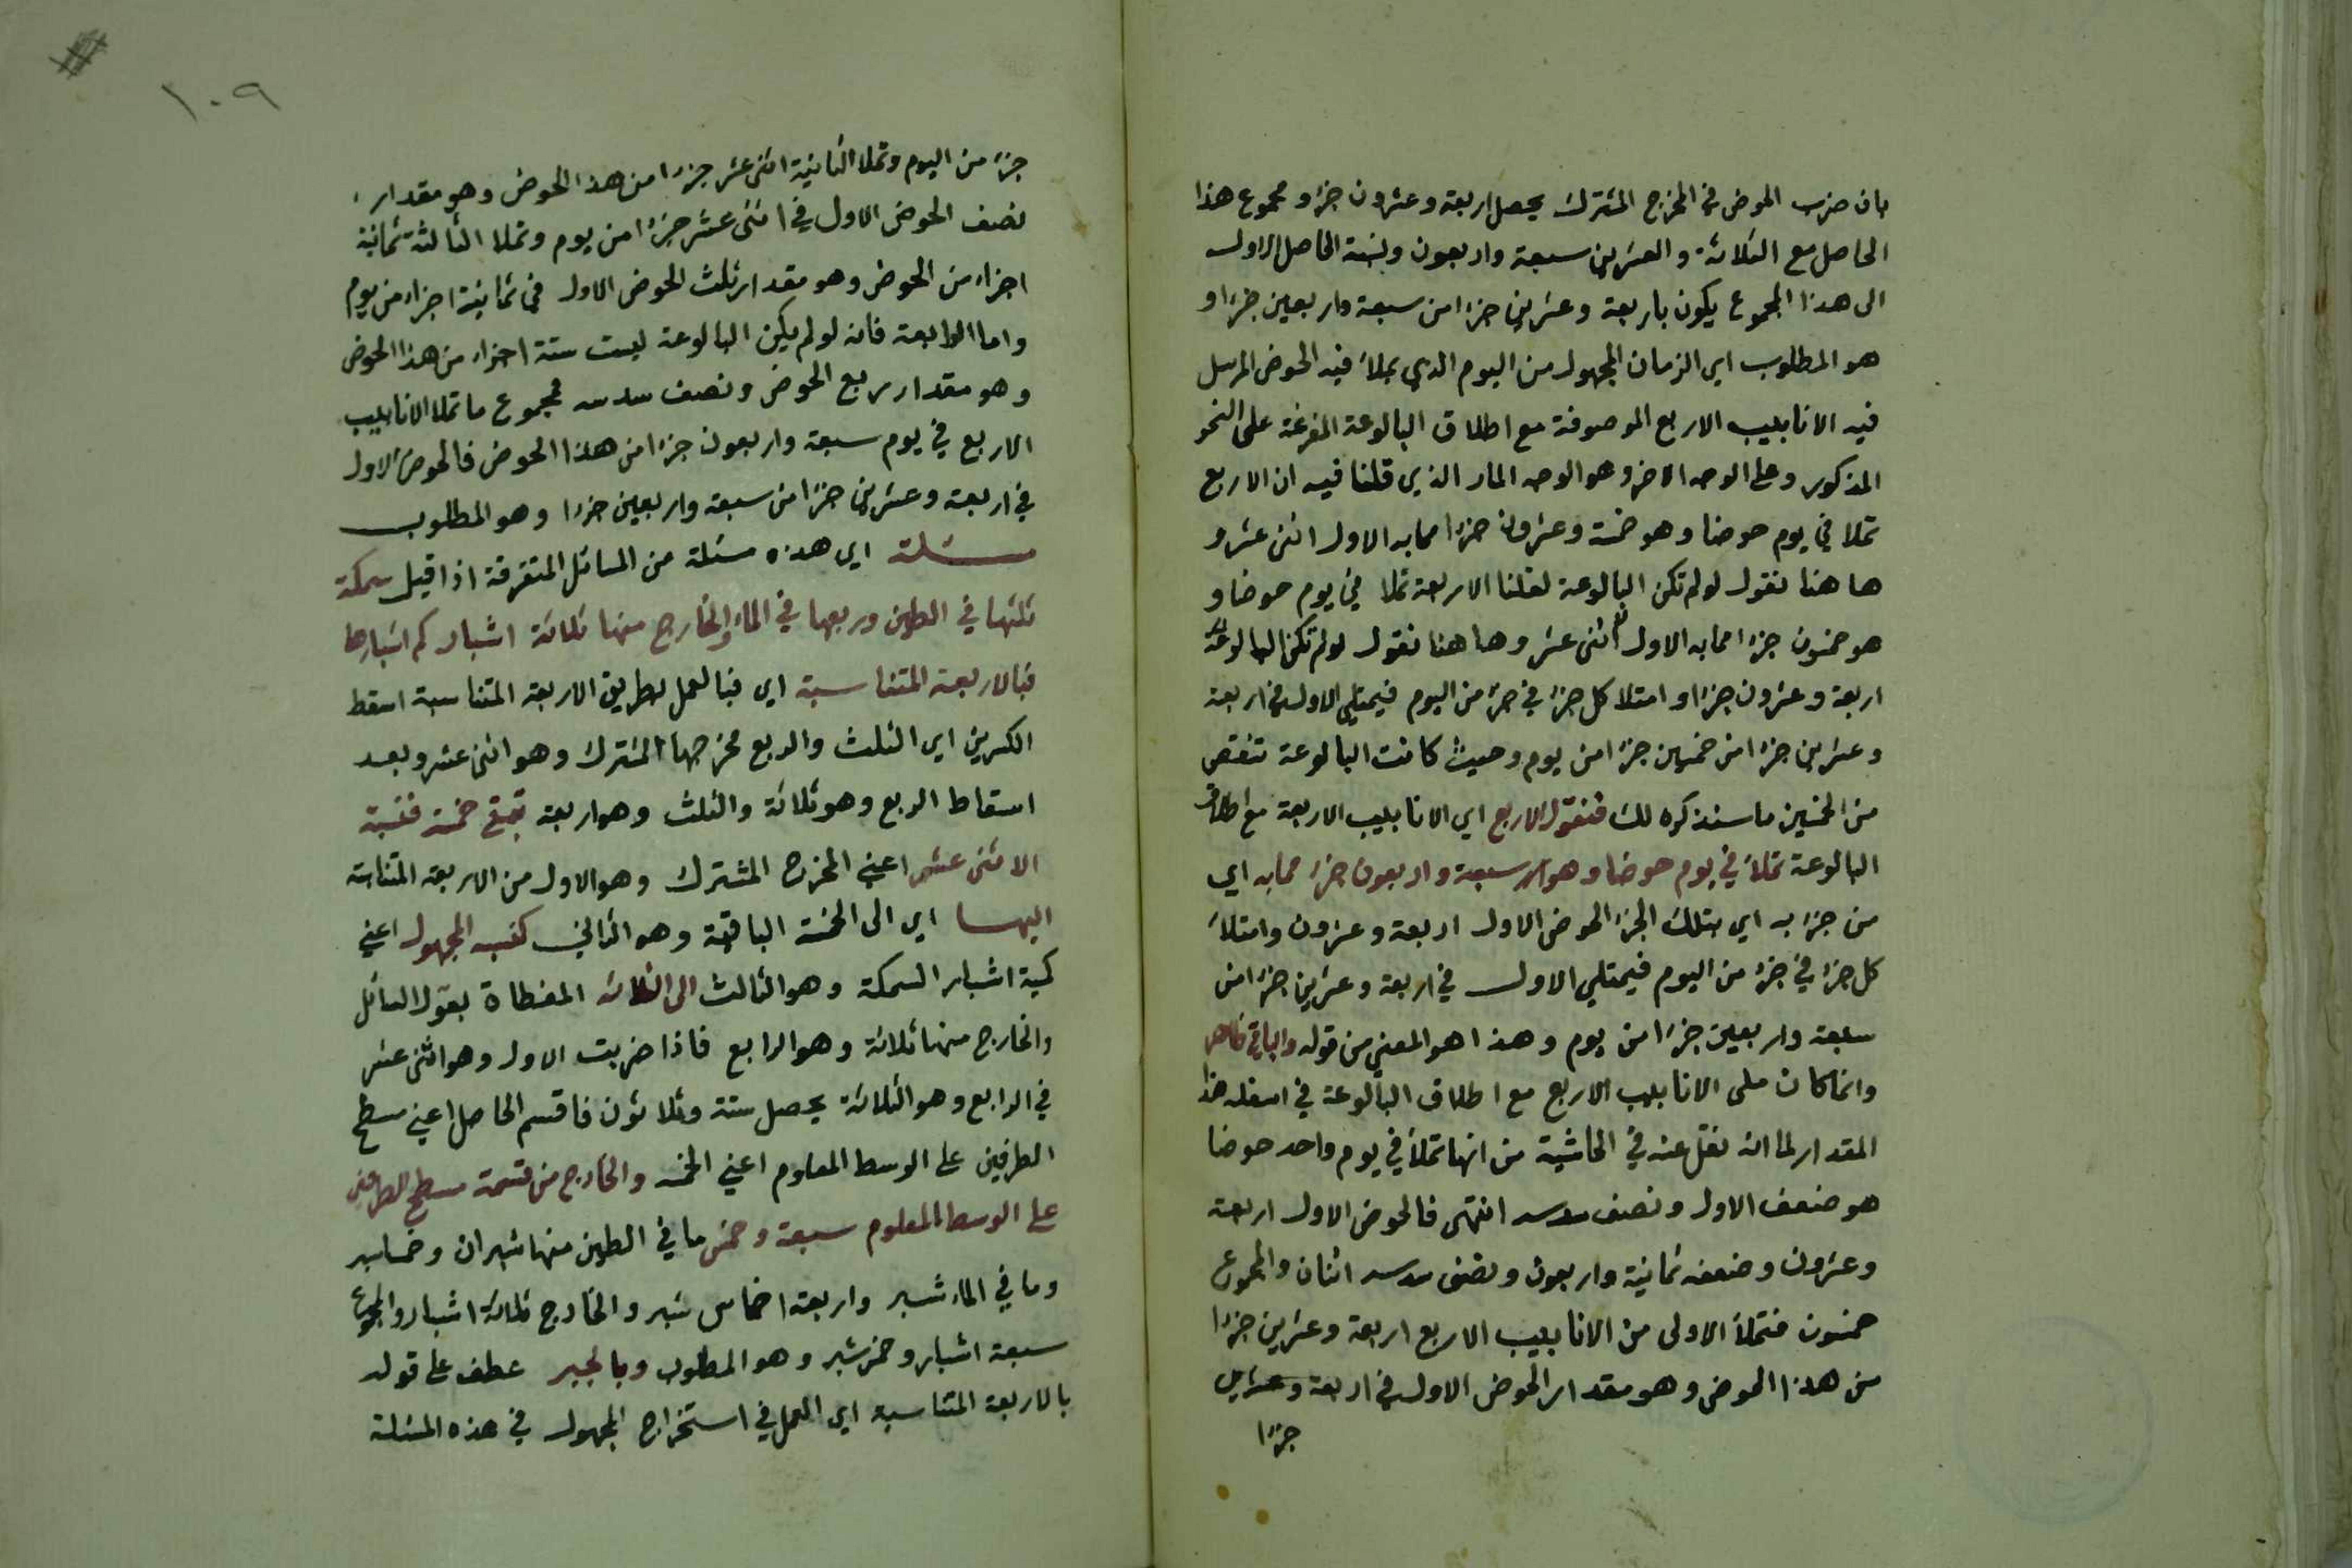 بان ضرب الحوض في المخرج المشترك يحصل اربعة وعشرون جزء و مجموع هذا
الحاصل مع الثلاثة والعشرين سبعة واربعون ونسبة الحاصل الاول
الى هذا المجموع يكون باربعة وعشرين جزءا من سبعة واربعين جزءا و
هو المطلوب اي الزمان المجهول من اليوم الذي يملأ فيه الحوض المرسل
فيه الانابيب الاربع الموصوفة مع اطلاق البالوعة المفرغة على النحو
المذكور وعلى الوجه الاخر وهو الوجه المار الذي قلنا فيه ان الاربع
تملا في يوم حوضا وهو خمسة وعشرون جزءا مما به الاول اثنى عشر و
ها هنا نقول لو لم تكن البالوعة لقلنا الاربعة تملا في يوم حوضا و
هو خمسون جزءا مما به الاول اثنى عشر وها هنا نقول لو لم تكن البالوعة
اربعة وعشرون جزءا وامتلا كل جزء في جزء من اليوم فيمتلي الاول في اربعة
وعشرين جزءا من خمسين جزءا من يوم وحيث كانت البالوعة تنقص
من الخمسين ما سنذكره لك فنقول الاربع اي الانابيب الاربعة مع اطلاق
البالوعة تملأ في يوم حوضا وهو سبعة واربعون جزء مما به اي
من جزء به اي بتلك الجزء الحوض الاول اربعة وعشرون وامتلأ
كل جزء في جزء من اليوم فيمتلي الاول في اربعة وعشرين جزءا من
سبعة واربعين جزءا من يوم وهذا هو المعني من قوله والباقي ظاهر
وانما كان ملى الانابيب الاربع مع اطلاق البالوعة في اسفله هذا
المقدار لما انه نقل عنه في الحاشية من انها تملأ في يوم واحد حوضا
هو ضعف الاول ونصف سدسه انتهى فالحوض الاول اربعة
وعشرون وضعفه ثمانية واربعون ونصف سدسه اثنان والمجموع
خمسون فتملأ الاولى من الانابيب الاربع اربعة وعشرين جزءا
من هذا الحوض وهو مقدار الحوض الاول في اربعة وعشرين
جزءا
١٠٩
جزء من اليوم وتملا الثانية اثنى عشر جزءا من هذا الحوض وهو مقدار
نصف الحوض الاول في اثنى عشر جزءا من يوم وتملا الثالثة ثمانية
اجزاء من الحوض وهو مقدار ثلث الحوض الاول في ثمانية اجزاء من يوم
واما الرابعة فانه لو لم يكن البالوعة ليست ستة اجزاء من هذا الحوض
وهو مقدار ربع الحوض ونصف سدسه فمجموع ما تملا الانابيب
الاربع في يوم سبعة واربعون جزءا من هذا الحوض فالحوض الاول
في اربعة وعشرين جزءا من سبعة واربعين جزءا وهو المطلوب
مسئلة اي هذه مسئلة من المسائل المتفرقة اذا قيل سمكة
ثلثها في الطين وربعها في الماء والخارج منها ثلاثة اشبار كم اشبارها
فبالاربعة المتناسبة اي فبالعمل بطريق الاربعة المتناسبة اسقط
الكسرين اي الثلث والربع مخرجها المشترك وهو اثنى عشر وبعد
اسقاط الربع وهو ثلاثة والثلث وهو اربعة تبقى خمسة فنسبة
الاثنى عشر اعني المخرج المشترك وهو الاول من الاربعة المتناسبة
اليها اي الى الخمسة الباقية وهو الثاني كنسبة المجهول اعني
كمية اشبار السمكة وهو الثالث الى الثلاثة المغطاة بقول السائل
والخارج منها ثلاثة وهو الرابع فاذا ضربت الاول وهو اثنى عشر
في الرابع وهو الثلاثة يحصل ستة وثلاثون فاقسم الحاصل اعني مسطح
الطرفين على الوسط المعلوم اعني الخمسة والخارج من قسمة مسطح الطرفين
على الوسط المعلوم سبعة وخمس ما في الطين منها شبران وخمسا شبر
وما في الماء شبر واربعة اخماس شبر والخارج ثلاثة اشبار والمجموع
سبعة اشبار وخمس شبر وهو المطلوب وبالجبر عطف على قوله
بالاربعة المتناسبة اي العمل في استخراج المجهول في هذه المسئلة